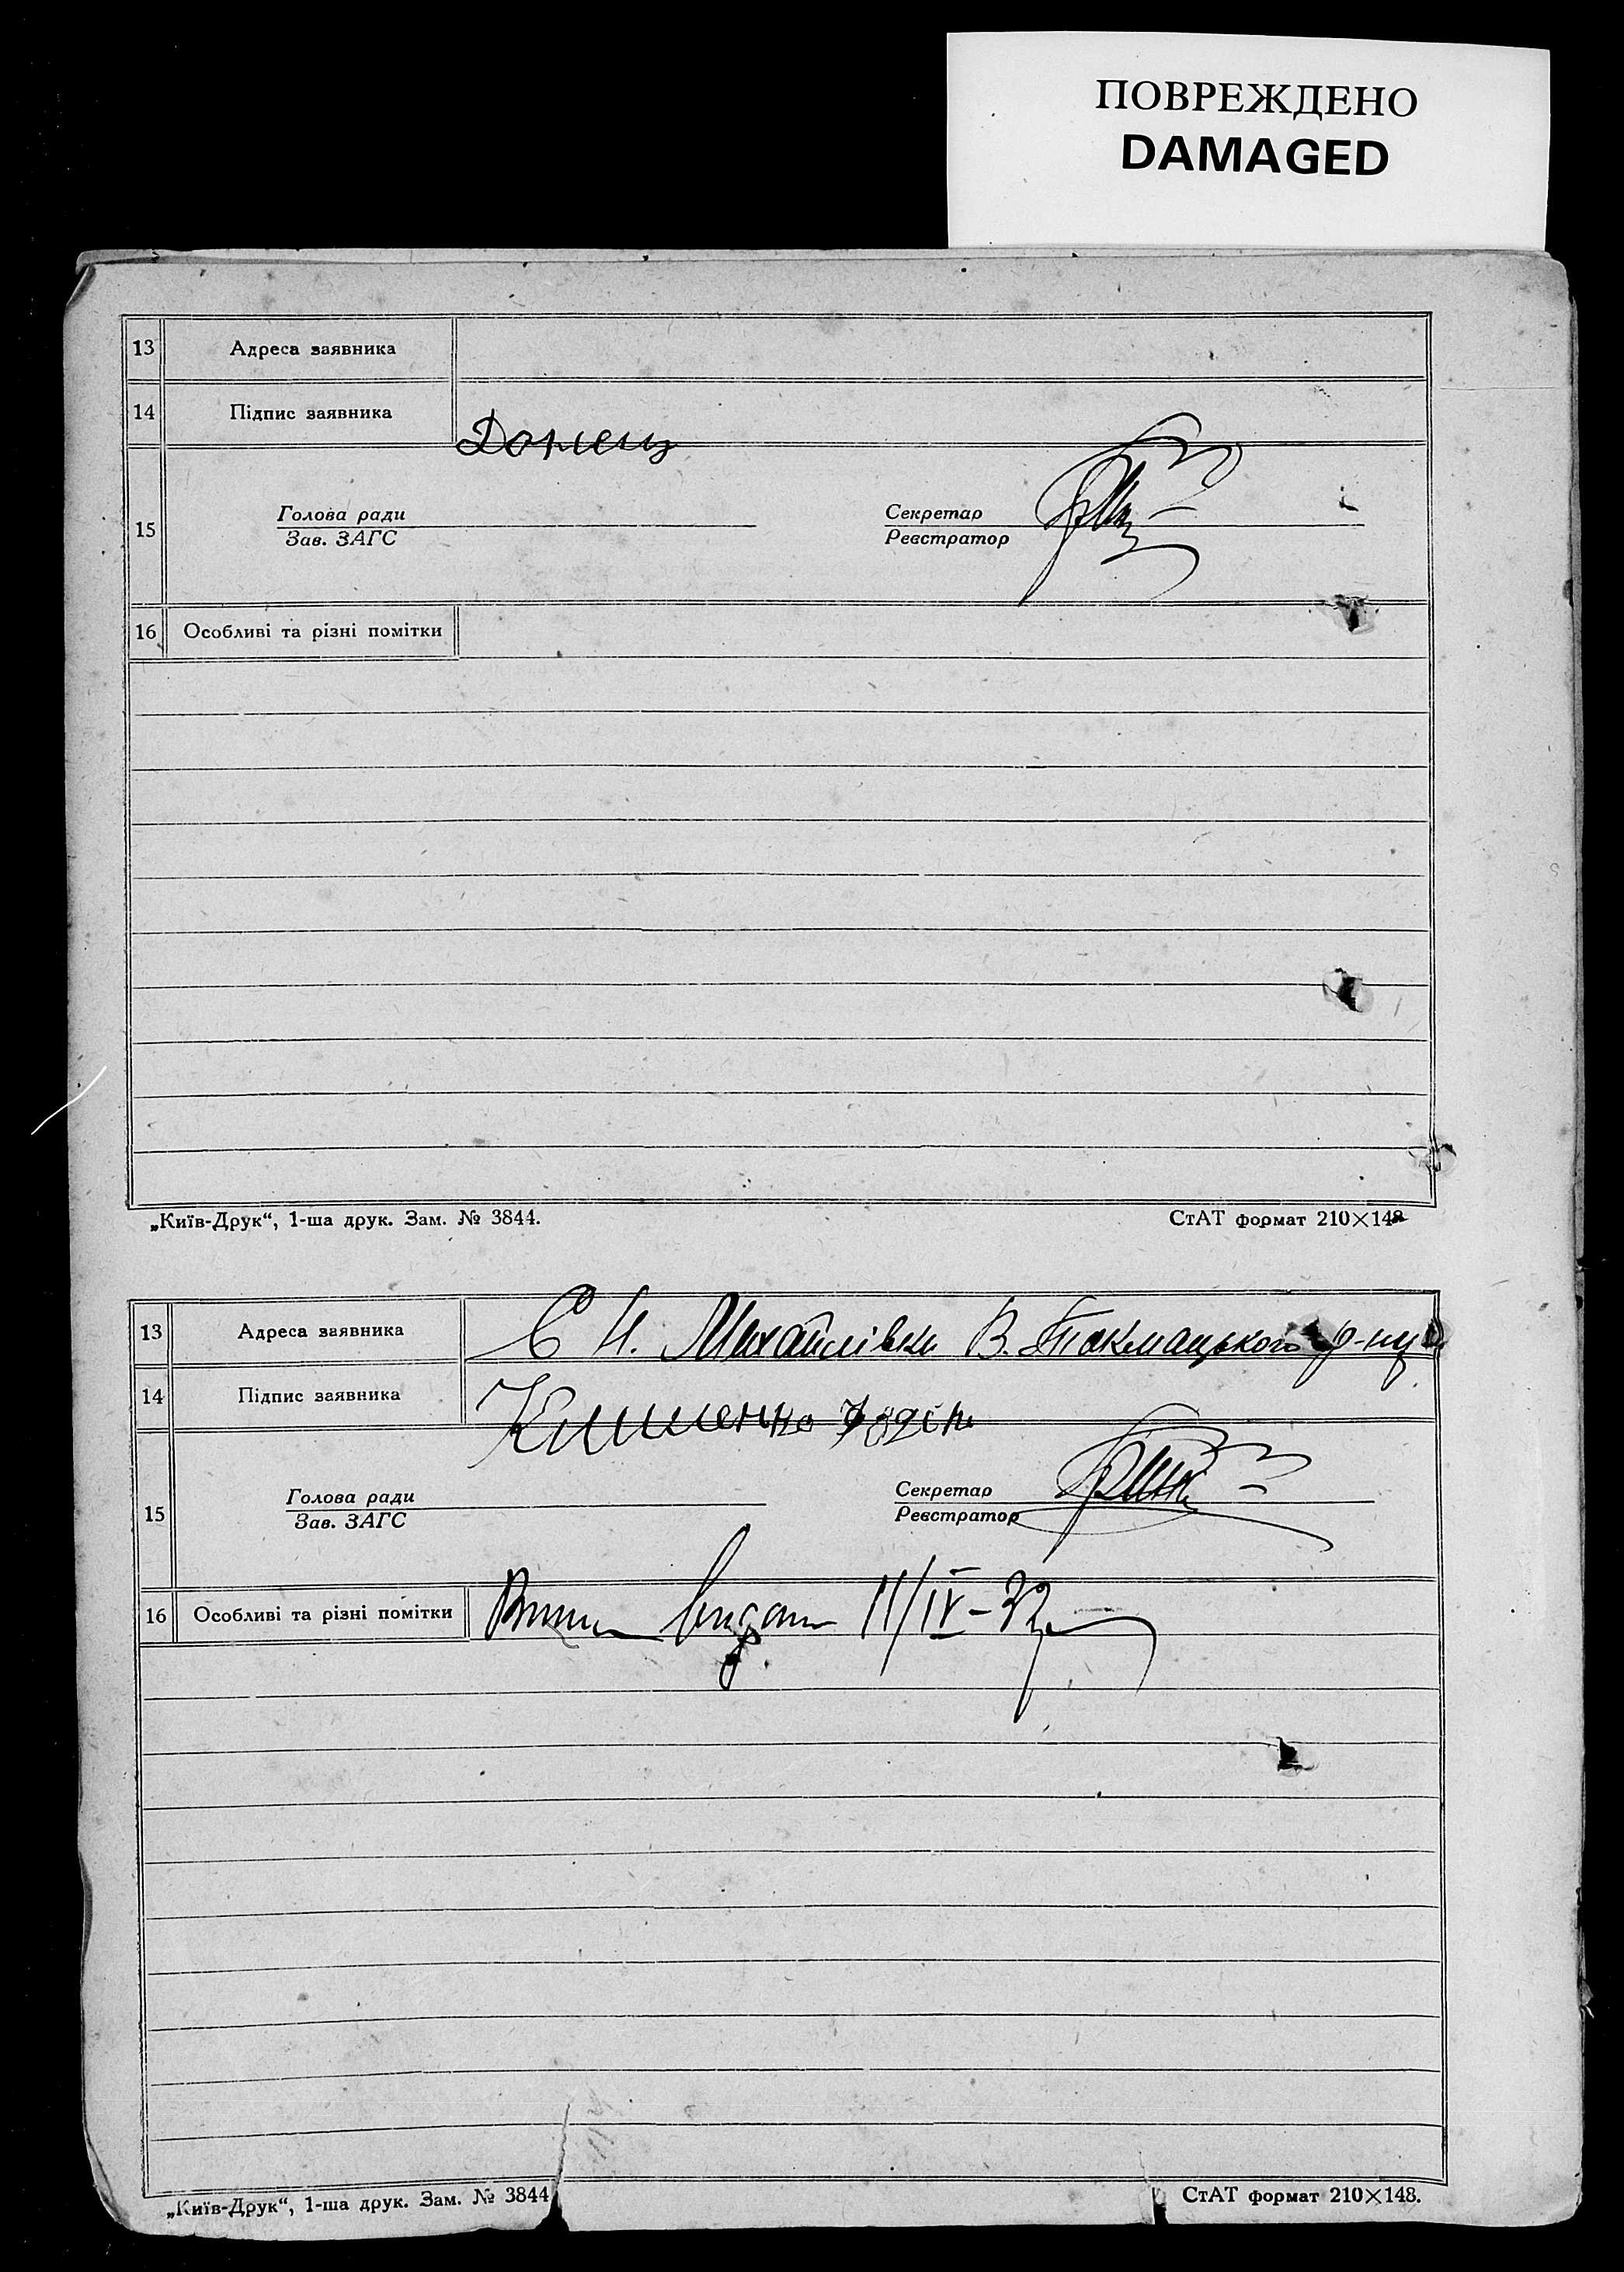 ПОВРЕЖДЕНО
DAMAGED
13 Адреса заявника
14 Підпис заявника Донець
15 Голова ради Секретар
Зав. ЗАГС Реєстратор
16 Особливі та різні помітки
„Київ-Друк“, 1-ша друк. Зам. № 3844. СтАТ формат 210×148
13 Адреса заявника С Н. Михайлівки В. Токмацького р-ну
14 Підпис заявника
15 Голова ради Секретар
Зав. ЗАГС Реєстратор
16 Особливі та різні помітки 11/IV-32
„Київ-Друк“, 1-ша друк. Зам. № 3844 СтАТ формат 210×148.